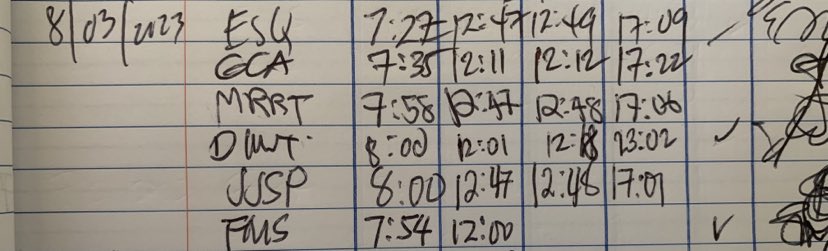 8/03/2023 ESQ 7:27 12:47 12:49 17:09
GCA 7:35 12:11 12:12 17:22
MRRT 7:58 12:47 12:48 17:06
8:00 12:01 12:18 23:02 ✓
JJSP 8:00 12:47 12:48 17:01
FMS 7:54 12:00 ✓